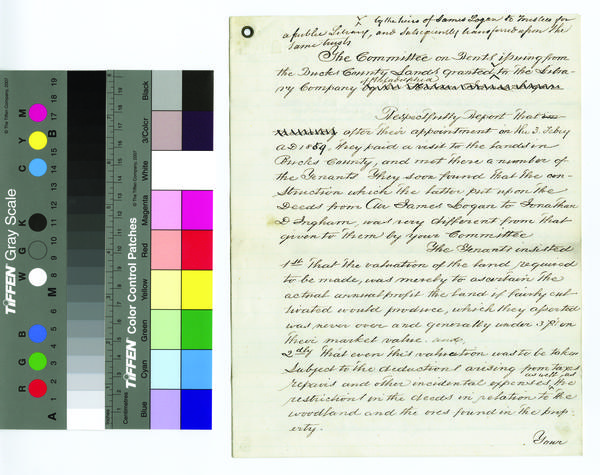 by the heirs of James Logan to Trustees for
a public Library, and subsequently transferred upon the
same trusts
The Committee on Rents issuing from
the Bucks County Lands granted to the Libra-
of Philadelphia
ry Company by
Respectfully Report That
after their appointment on the 3. Febry
A D 1859, they paid a visit to the lands in
Bucks County, and met there a number of
the Tenants They soon found that the con-
struction which the latter put upon the
Deeds from Mr James Logan to Jonathan
D Ingham, was very different from that
given to them by your Committee
The Tenants insisted
1st That the valuation of the land required
to be made, was merely to ascertain the
actual annual profit the land if fairly cul-
tivated would produce, which they asserted
was never over and generally under 3 pr Ct on
their market value. and
2dly That even this valuation was to be taken
subject to the deductions arising from taxes
as well as
repairs and other incidental expenses, the
restrictions in the deeds in relation to the
woodland and the ores found in the prop-
erty.
Your
TIFFEN Gray Scale
© The Tiffen Company, 2007
R G B W G K C Y M
A 1 2 3 4 5 6 M 8 9 10 11 12 13 14 15 B 17 18 19
TIFFEN Color Control Patches
© The Tiffen Company, 2007
Inches
Centimetres
Blue
Cyan
Green
Yellow
Red
Magenta
White
3/Color
Black